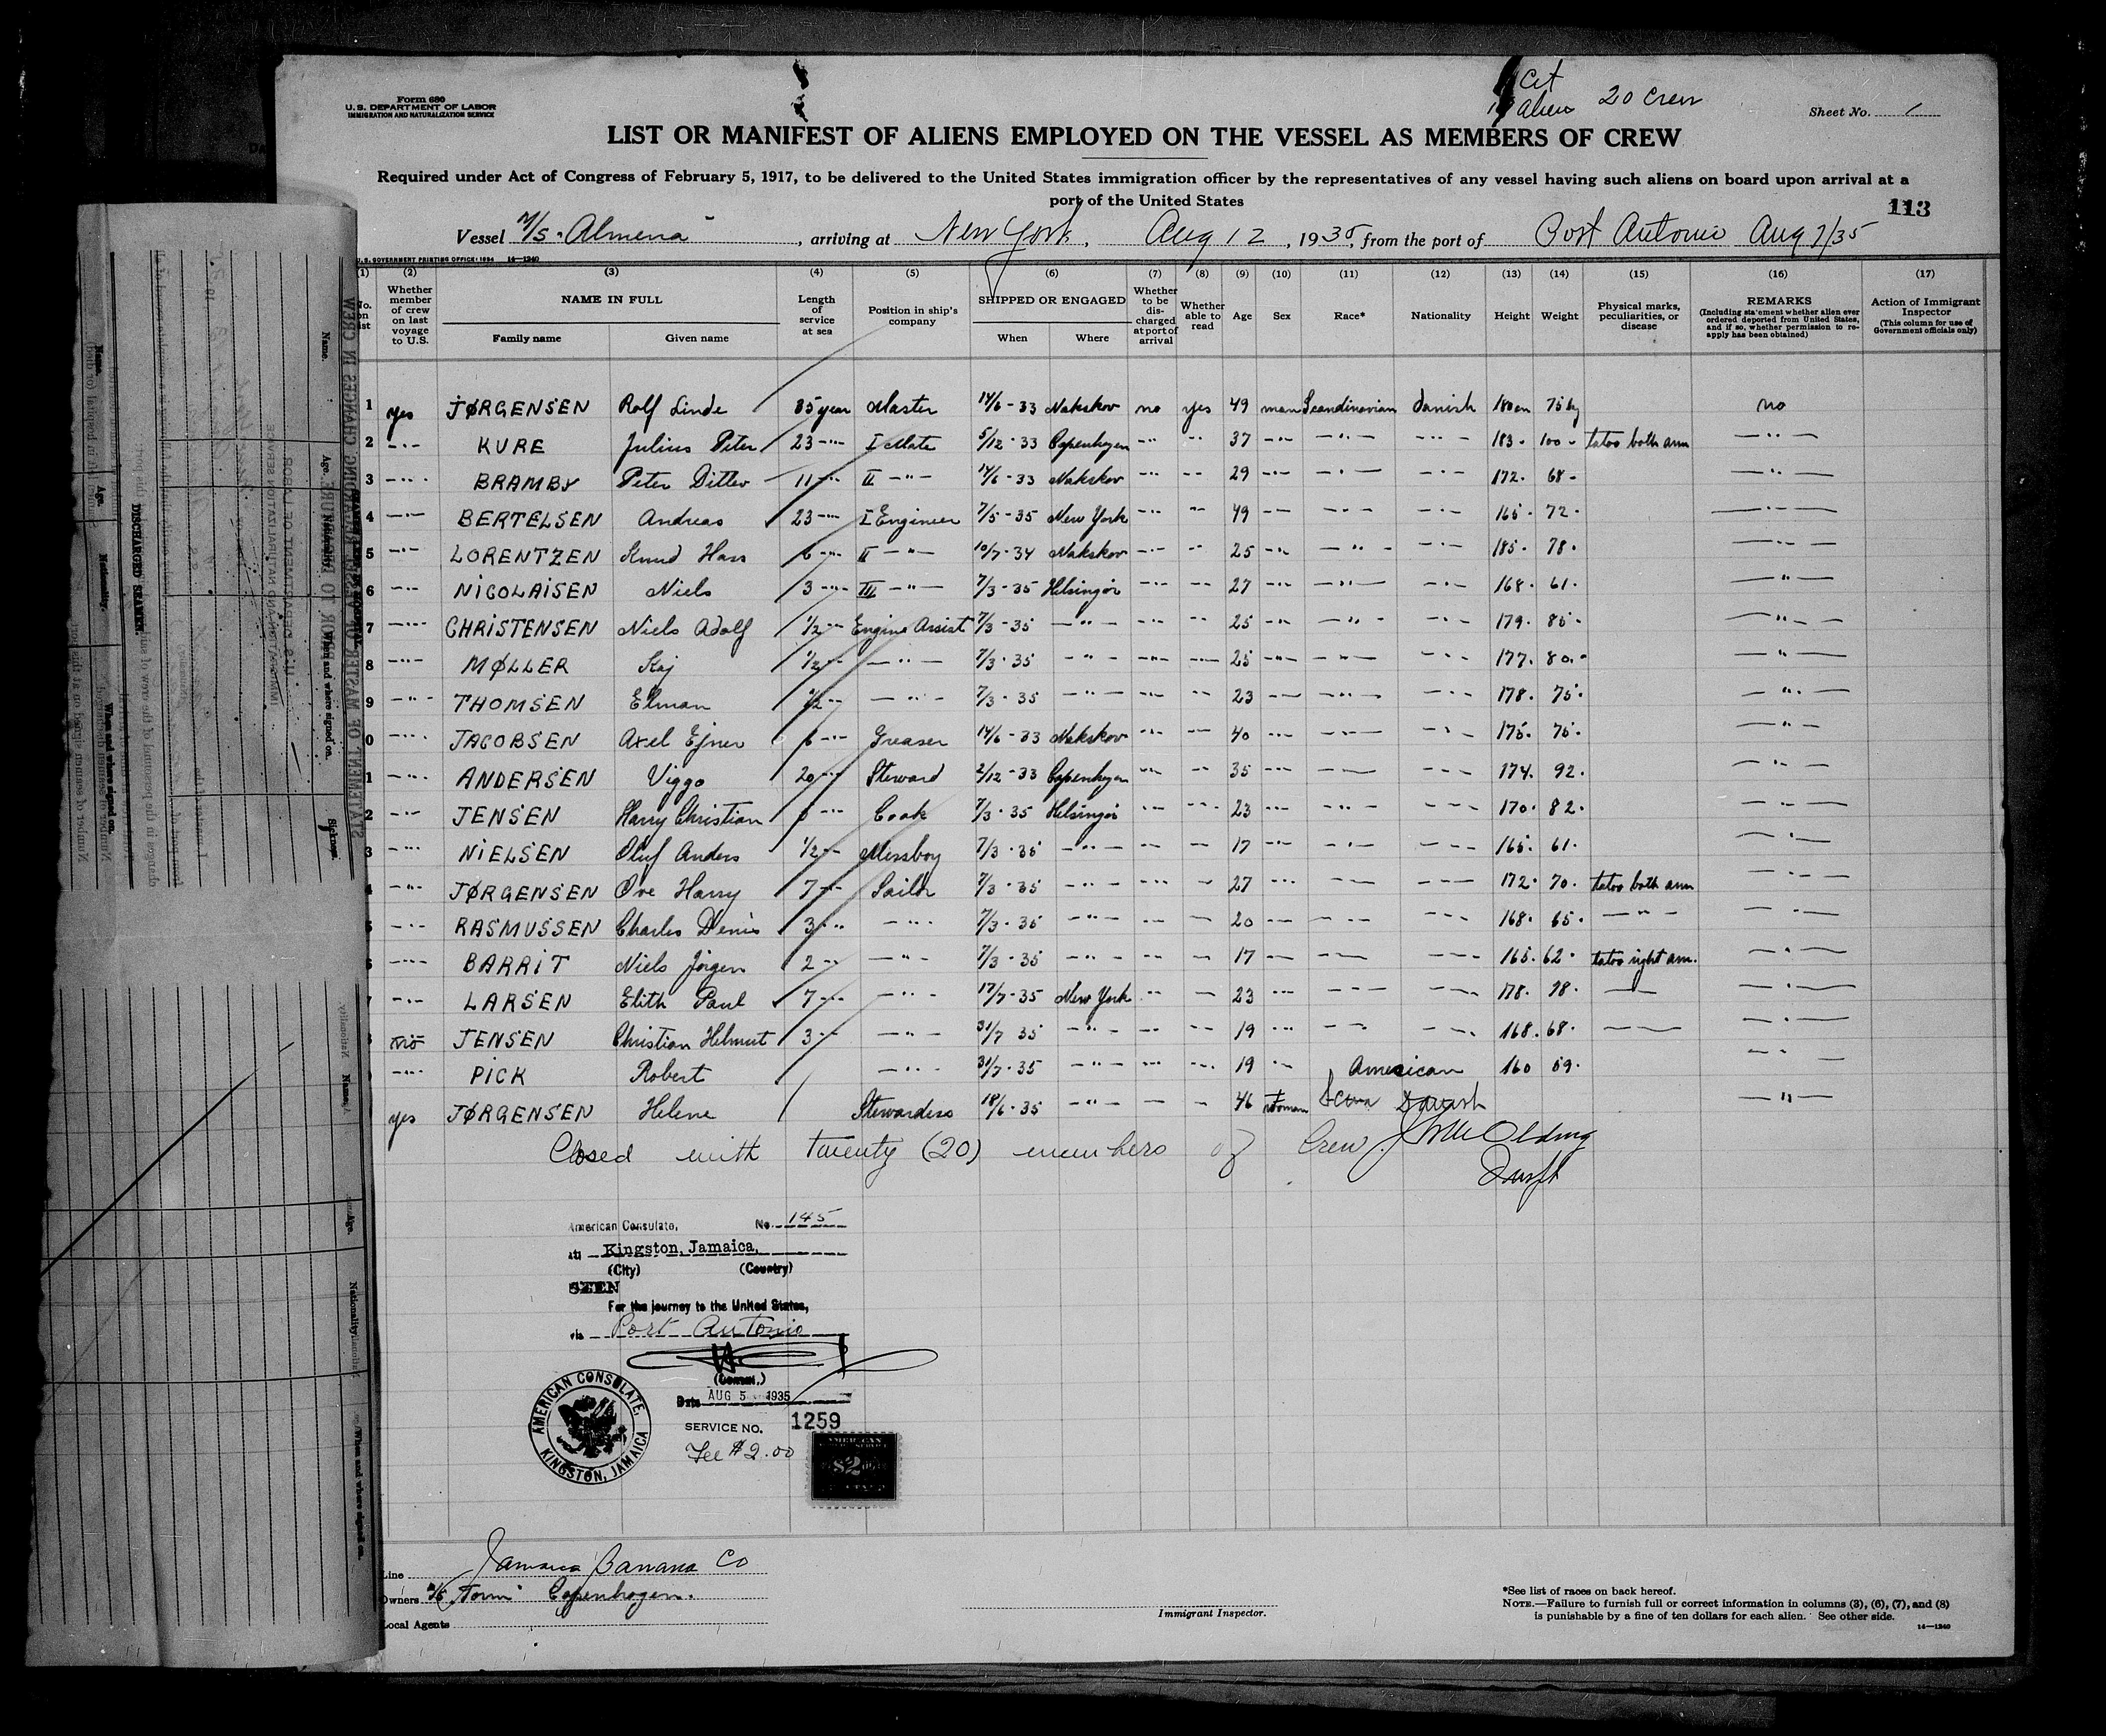 Form 680
U.S. DEPARTMENT OF LABOR
IMMIGRATION AND NATURALIZATION SERVICE
Cit
Alien 20 Crew
Sheet No. 1
LIST OR MANIFEST OF ALIENS EMPLOYED ON THE VESSEL AS MEMBERS OF CREW
Required under Act of Congress of February 5, 1917, to be delivered to the United States immigration officer by the representatives of any vessel having such aliens on board upon arrival at a
port of the United States
113
Vessel M/S "Almena", arriving at New York, Aug 12, 1935, from the port of Port Antonio Aug 7/35
U.S. GOVERNMENT PRINTING OFFICE: 1934 14—1240
(1) (2) (3) (4) (5) (6) (7) (8) (9) (10) (11) (12) (13) (14) (15) (16) (17)
Whether member of crew on last voyage to U.S.
NAME IN FULL
Family name Given name
Length of service at sea
Position in ship's company
SHIPPED OR ENGAGED
When Where
Whether to be discharged at port of arrival
Whether able to read
Age Sex Race* Nationality Height Weight
Physical marks, peculiarities, or disease
REMARKS
(Including statement whether alien ever ordered deported from United States, and if so, whether permission to reapply has been obtained)
Action of Immigrant Inspector
(This column for use of Government officials only)
1 yes JØRGENSEN Rolf Linde 35 year Master 14/6-33 Nakskov no yes 49 man Scandinavian Danish 180 cm 75 kg no
2 -"- KURE Julius Peter 23 -"- I Mate 5/12-33 Copenhagen -"- -"- 37 -"- -"- -"- 183 100 tatoo both arm -"-
3 -"- BRAMBY Peter Ditlev 11 -"- II -"- 14/6-33 Nakskov -"- -"- 29 -"- -"- -"- 172 68 -"-
4 -"- BERTELSEN Andreas 23 -"- I Engineer 7/5-35 New York -"- -"- 49 -"- -"- -"- 165 72 -"-
5 -"- LORENTZEN Knud Hans 6 -"- II -"- 10/7-34 Nakskov -"- -"- 25 -"- -"- -"- 185 78 -"-
6 -"- NICOLAISEN Niels 3 -"- III -"- 7/3-35 Helsingör -"- -"- 27 -"- -"- -"- 168 61 -"-
7 -"- CHRISTENSEN Niels Adolf 1/2 -"- Engine Assist 7/3-35 -"- -"- -"- 25 -"- -"- -"- 179 85 -"-
8 -"- MØLLER Kaj 1/2 -"- -"- 7/3-35 -"- -"- -"- 25 -"- -"- -"- 177 80 -"-
9 -"- THOMSEN Elman 1/2 -"- -"- 7/3-35 -"- -"- -"- 23 -"- -"- -"- 178 75 -"-
0 -"- JACOBSEN Axel Ejner 6 -"- Greaser 14/6-33 Nakskov -"- -"- 40 -"- -"- -"- 175 75 -"-
1 -"- ANDERSEN Viggo 20 -"- Steward 2/12-33 Copenhagen -"- -"- 35 -"- -"- -"- 174 92 -"-
2 -"- JENSEN Harry Christian -"- Cook 7/3-35 Helsingör -"- -"- 23 -"- -"- -"- 170 82 -"-
3 -"- NIELSEN Oluf Anders 1/2 -"- Messboy 7/3-35 -"- -"- -"- 17 -"- -"- -"- 165 61 -"-
4 -"- JØRGENSEN Ove Harry 7 -"- Sailor 7/3-35 -"- -"- -"- 27 -"- -"- -"- 172 70 tatoo both arm -"-
5 -"- RASMUSSEN Charles Denis 3 -"- -"- 7/3-35 -"- -"- -"- 20 -"- -"- -"- 168 65 -"- -"-
6 -"- BARRIT Niels Jörgen 2 -"- -"- 7/3-35 -"- -"- -"- 17 -"- -"- -"- 165 62 tatoo right arm. -"-
7 -"- LARSEN Elith Paul 7 -"- -"- 17/7-35 New York -"- -"- 23 -"- -"- -"- 178 78 — -"-
8 no JENSEN Christian Helmut 3 -"- -"- 31/7 35 -"- -"- -"- 19 -"- -"- -"- 168 68 — -"-
-"- PICK Robert -"- 31/7-35 -"- -"- -"- 19 -"- American 160 59 -"-
yes JØRGENSEN Helene Stewardess 18/6-35 -"- -"- -"- 46 Woman Scan Danish -"-
Closed with twenty (20) members of Crew
American Consulate, No. 145
at Kingston, Jamaica,
(City) (Country)
SEEN
For the journey to the United States,
via Port Antonio
(Consul.)
Date AUG 5 1935
SERVICE NO. 1259
Fee $2.00
AMERICAN CONSULATE, KINGSTON, JAMAICA
AMERICAN
$2
Line Jamaica Banana Co
Owners A/S "Torm" Copenhagen.
Local Agents
Immigrant Inspector.
*See list of races on back hereof.
NOTE.—Failure to furnish full or correct information in columns (3), (6), (7), and (8)
is punishable by a fine of ten dollars for each alien. See other side.
14—1240
STATEMENT OF MASTER OF VESSEL REGARDING CHANGES IN CREW
DISCHARGED SEAMEN